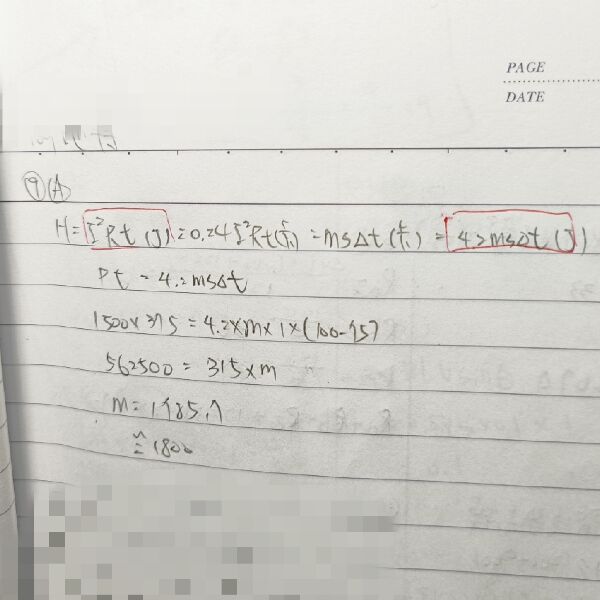 PAGE
DATE
⑨(A)
H = I²Rt (J) = 0.24 I²Rt (卡) = ms△t (卡) = 4.2ms△t (J)
Pt = 4.2ms△t
1500×375 = 4.2×m×1×(100-25)
562500 = 315×m
m = 1785.7
≒ 1800